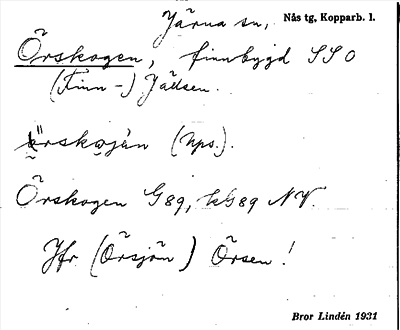 Järna sn, Nås tg, Kopparb. l.
Örskogen, finnbygd SSO
(Finn-) Jädsen.
örskojän (Ups.).
Örskogen G89, kG89 NV.
Jfr (Örsjön) Örsen!
Bror Lindén 1931